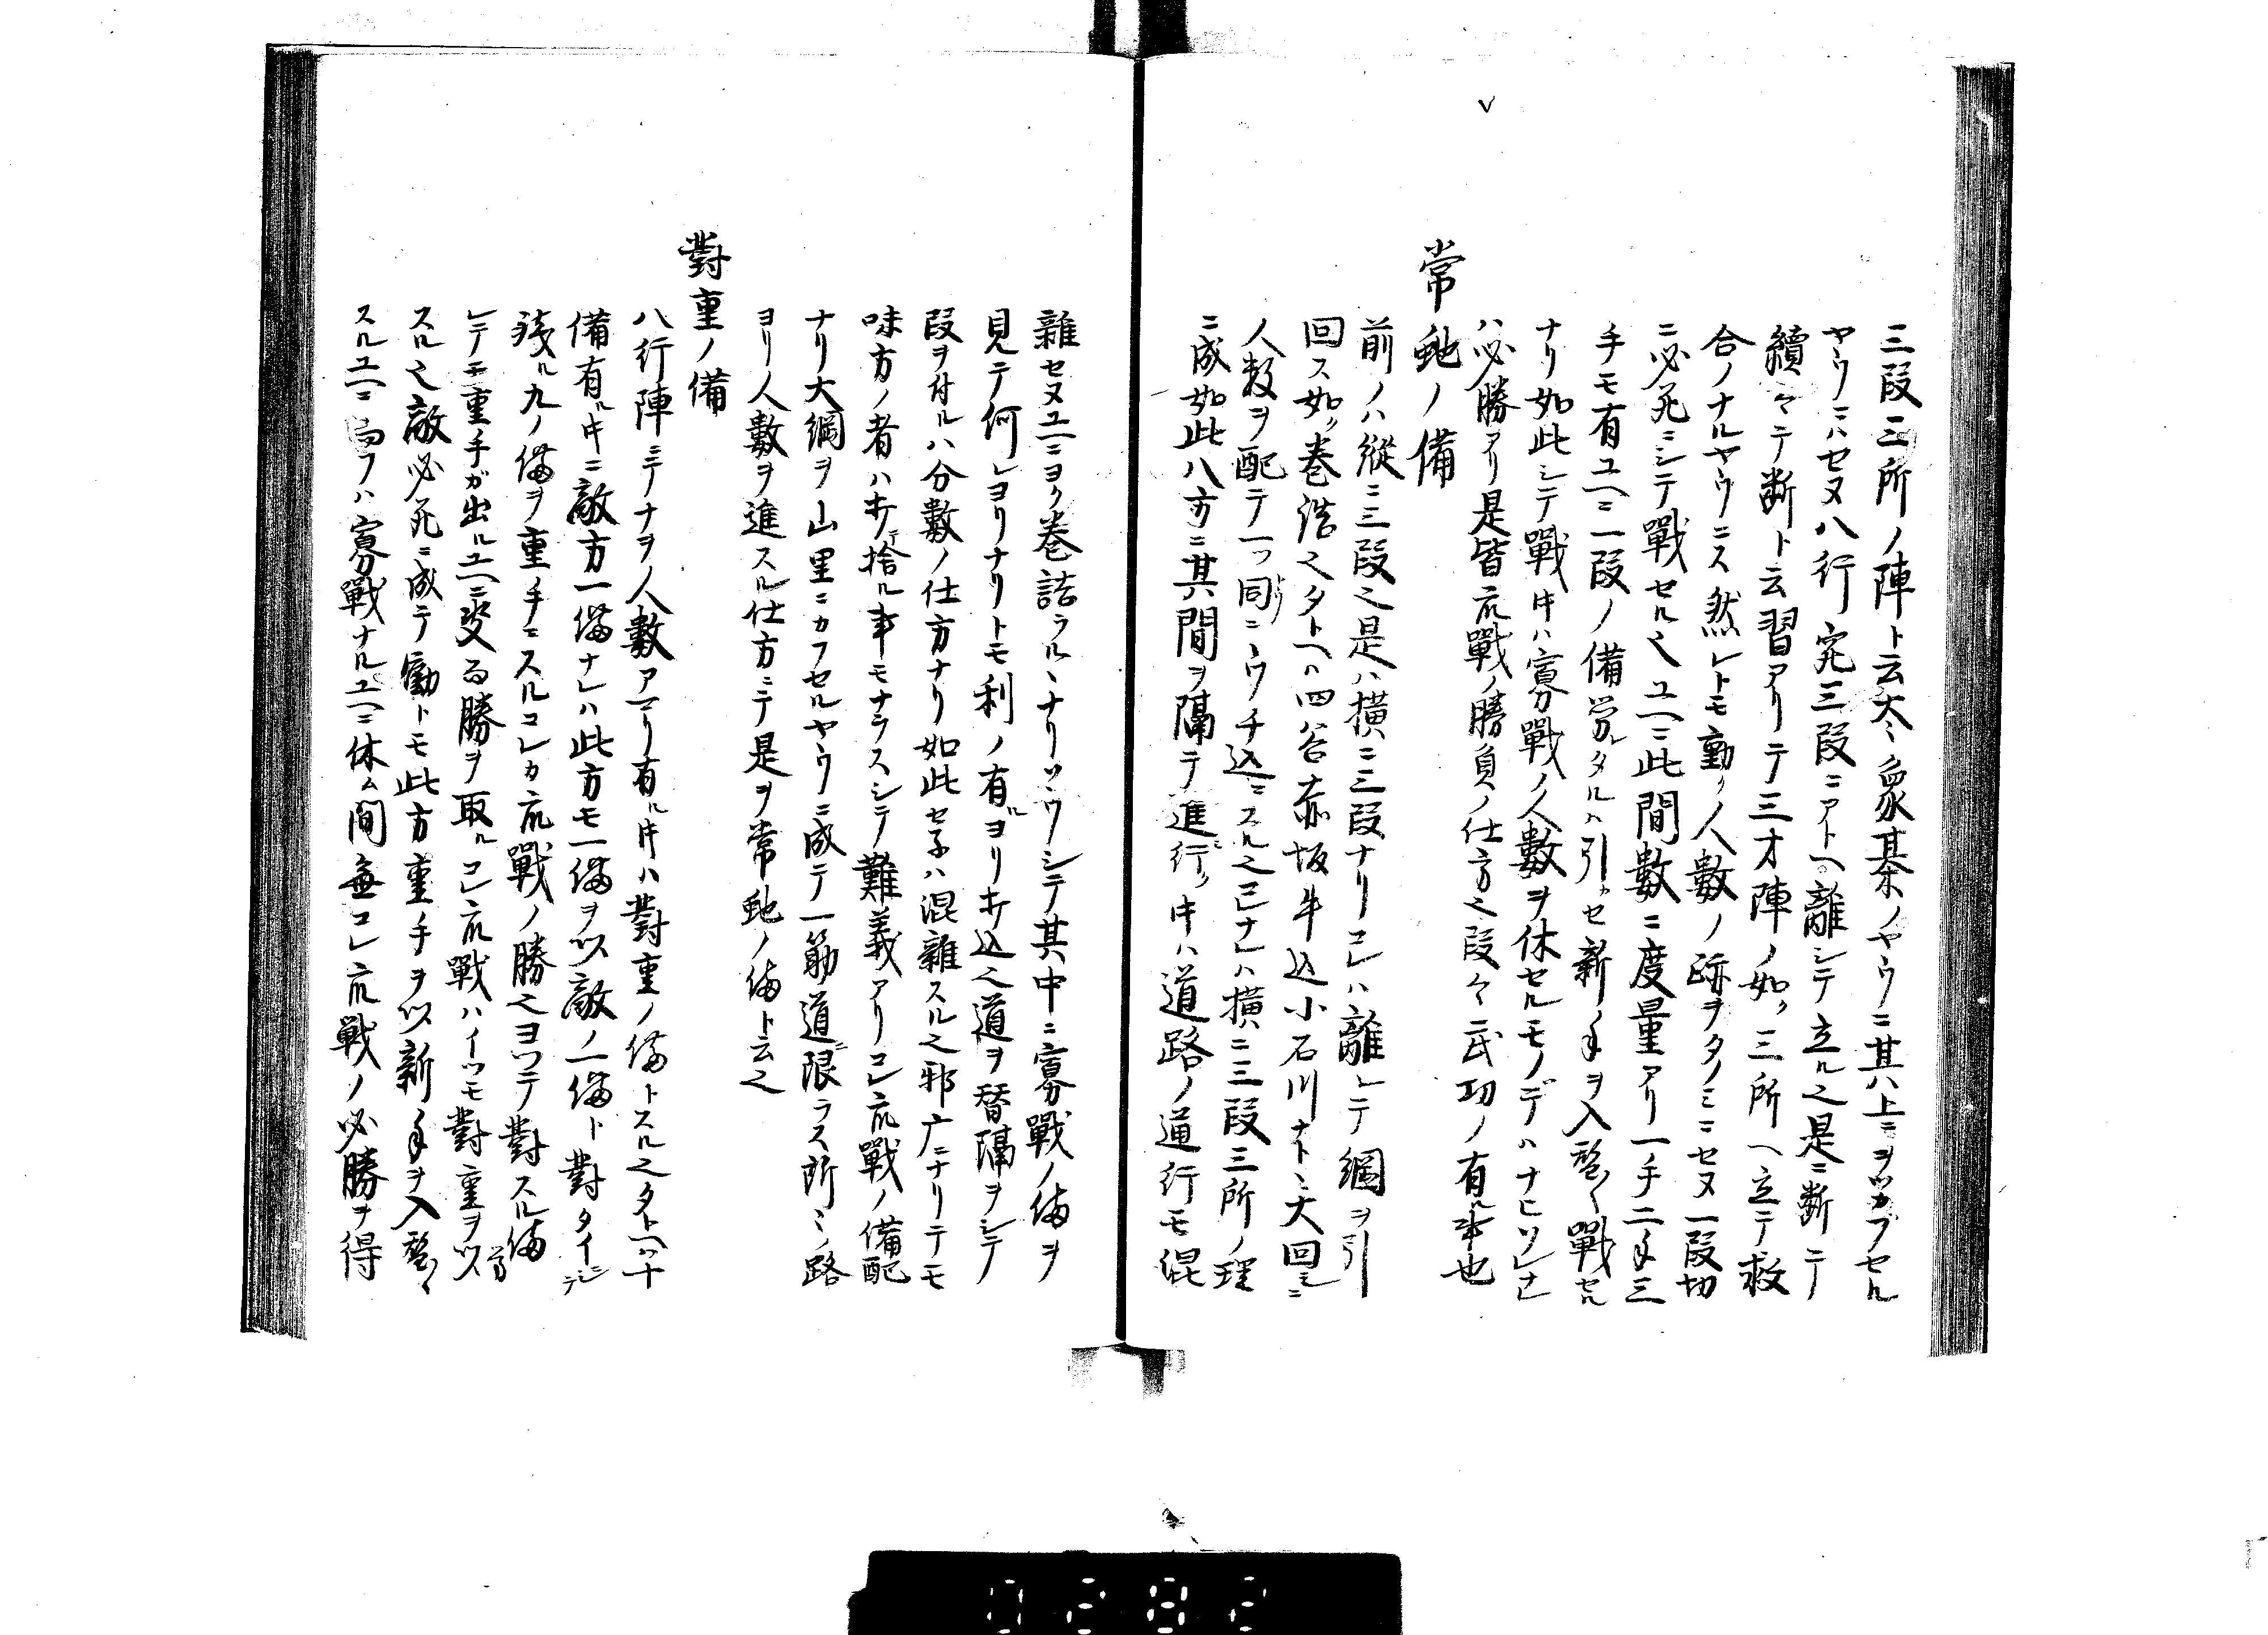 三段三所ノ陣ト云大象棊ノヤウニ其上ニヲツカフセル
ヤウニハセヌ八行宛三段ニアトヘ離シテ立ル之是ニ断ニテ
續々テ断ト云習アリテ三才陣ノ如ク三所ヘ立テ救
合ノナルヤウニス然レトモ動ク人數ノ跡ヲタノミニセヌ一段切
ニ必死ニシテ戰セル之ユヘニ此間數ニ度量アリ一手二手三
手モ有ユヘニ一段ノ備労ルタルハ引セ新手ヲ入替々戰セル
ナリ如此シテ戰キハ寡戰ノ人數ヲ休セルモノデハナヒソレナレ
ハ必勝アリ是皆亢戰ノ勝負ノ仕方之段々武功ノ有ル事也
常虵ノ備
前ノハ縱ニ三段之是ハ横ニ三段ナリコレハ離レテ綱ヲ引
回ス如ク巻詰之タトヘハ四谷赤坂牛込小石川ナトヽ大回シニ
人数ヲ配テ一ツ同ニウチ込ニスル之已ナレハ横ニ三段三所ノ理
ニ成如此八方ニ其間ヲ隔テ進行クキハ道路ノ通行モ混
雜セヌユヘニヨク巻詰ラルヽナリソウシテ其中ニ寡戰ノ備ヲ
見テ何レヨリナリトモ利ノ有ルヨリキ込之道ヲ替隔ヲシテ
段ヲ付ルハ分數ノ仕方ナリ如此セ子ハ混雜スル之邪广ニナリテモ
味方ノ者ハキテ捨ル事モナラスシテ難義アリコレ亢戰ノ備配
ナリ大綱ヲ山里ニカフセルヤウニ成テ一筋道ニ限ラス所々ノ路
ヨリ人數ヲ進スル仕方ニテ是ヲ常虵ノ備ト云之
對重ノ備
八行陣ニテナヲ人數アマリ有ルキハ對重ノ備トスル之タトヘハ十
備有ルキニ敵方一備ナレハ此方モ一備ヲ以敵ノ一備ト對タイシテ
残ル九ノ備ヲ重手ニスルコレカ亢戰ノ勝之ヨツテ對スル備労
レテモ重手ガ出ルユヘニ交る勝ヲ取ルコレ亢戰ハイツモ對重ヲ以
スル之敵必死ニ成テ働トモ此方重手ヲ以新手ヲ入替々
スルユヘニ向フハ寡戰ナルユヘニ休ム間無コレ亢戰ノ必勝ヲ得